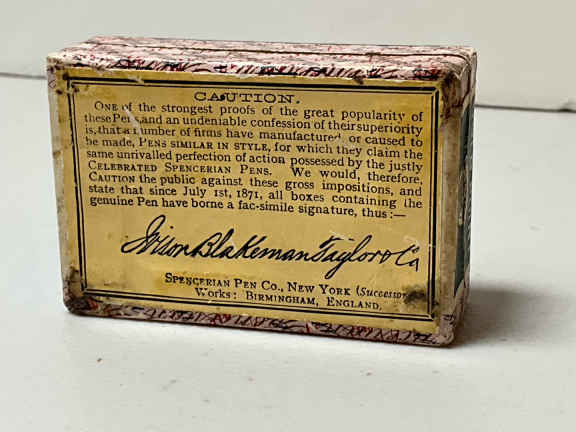 CAUTION.
ONE of the strongest proofs of the great popularity of
these Pens, and an undeniable confession of their superiority
is, that a number of firms have manufactured, or caused to
be made, PENS SIMILAR IN STYLE, for which they claim the
same unrivalled perfection of action possessed by the justly
CELEBRATED SPENCERIAN PENS. We would, therefore,
CAUTION the public against these gross impositions, and
state that since July 1st, 1871, all boxes containing the
genuine Pen have borne a fac-simile signature, thus:—
Ivison Blakeman Taylor & Co
SPENCERIAN PEN CO., NEW YORK (Successors
WORKS: BIRMINGHAM, ENGLAND.